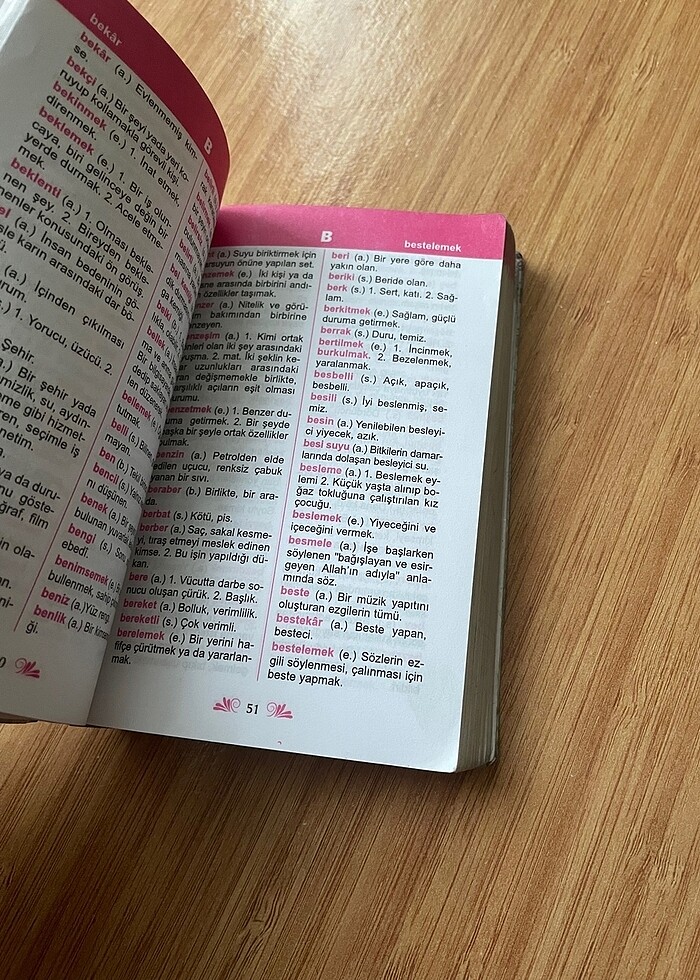 bekâr
bekâr (a.) Evlenmemiş kim-
se.
bekçi (a.) Bir şeyi yada yeri ko-
ruyup kollamakla görevli kişi.
bekinmek (e.) 1. İnat etmek,
direnmek.
beklemek (e.) 1. Bir iş olun-
caya, biri gelinceye değin, bir
yerde durmak. 2. Acele etme-
mek.
beklenti (a.) 1. Olması bekle-
nen şey, 2. Bireyden bekle-
menler konusundaki ön görüş.
(a.) İnsan bedeninin, gö-
sle karın arasındaki dar bö-
(a.) İçinden çıkılması
rum.
) 1. Yorucu, üzücü, 2.
Şehir.
.) Bir şehir yada
mizlik, su, aydın-
eme gibi hizmet-
ren, seçimle iş
netim.
ya da duru-
nu göste-
ğraf, film
in ola-
an.
ni-
B
bellemek
tutmak.
belli (s.)
mayan.
ben (b.)
bencil (s.)
nı düşünen.
benek (a.) Bir
bulunan yuvarlak
bengi (s.) Sonu
ebedî.
benimsemek (e.)
bullenmek, sahip
beniz (a.)Yüz rengi.
benlik (a.) Bir kimsenin
ği.
B
bestelemek
(a.) Suyu biriktirmek için
arsuyun önüne yapılan set.
nzemek (e.) İki kişi ya da
ne arasında birbirini andı-
özellikler taşımak.
nzer (a.) Nitelik ve görü-
bakımından birbirine
nzeyen.
nzeşim (a.) 1. Kimi ortak
nleri olan iki şey arasındaki
uyuşma. 2. mat. İki şeklin ke-
ar uzunlukları arasındaki
an değişmemekle birlikte,
arşılıklı açıların eşit olması
urumu.
enzetmek (e.) 1. Benzer du-
uma getirmek. 2. Bir şeyde
başka bir şeyle ortak özellikler
ulmak.
enzin (a.) Petrolden elde
edilen uçucu, renksiz çabuk
yanan bir sıvı.
beraber (b.) Birlikte, bir ara-
da.
berbat (s.) Kötü, pis.
berber (a.) Saç, sakal kesme-
yi, tıraş etmeyi meslek edinen
kimse. 2. Bu işin yapıldığı dü-
kan.
bere (a.) 1. Vücutta darbe so-
nucu oluşan çürük. 2. Başlık.
bereket (a.) Bolluk, verimlilik.
bereketli (s.) Çok verimli.
berelemek (e.) Bir yerini ha-
fifçe çürütmek ya da yararlan-
mak.
beri (a.) Bir yere göre daha
yakın olan.
beriki (s.) Beride olan.
berk (s.) 1. Sert, katı. 2. Sağ-
lam.
berkitmek (e.) Sağlam, güçlü
duruma getirmek.
berrak (s.) Duru, temiz.
bertilmek (e.) 1. İncinmek,
burkulmak. 2. Bezelenmek,
yaralanmak.
besbelli (s.) Açık, apaçık,
besbelli.
besili (s.) İyi beslenmiş, se-
miz.
besin (a.) Yenilebilen besleyi-
ci yiyecek, azık.
besi suyu (a.) Bitkilerin damar-
larında dolaşan besleyici su.
besleme (a.) 1. Beslemek ey-
lemi 2. Küçük yaşta alınıp bo-
ğaz tokluğuna çalıştırılan kız
çocuğu.
beslemek (e.) Yiyeceğini ve
içeceğini vermek.
besmele (a.) İşe başlarken
söylenen "bağışlayan ve esir-
geyen Allah'ın adıyla" anla-
mında söz.
beste (a.) Bir müzik yapıtını
oluşturan ezgilerin tümü.
bestekâr (a.) Beste yapan,
besteci.
bestelemek (e.) Sözlerin ez-
gili söylenmesi, çalınması için
beste yapmak.
51